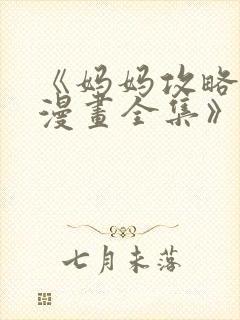 《妈妈攻略
漫畫全集》
七月未落